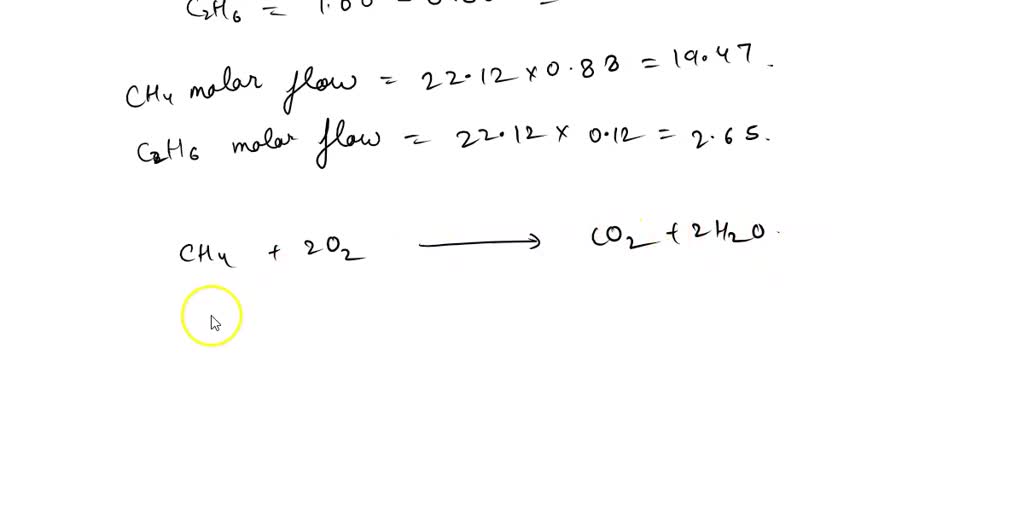 C2H6 = 1.00 -
CH4 molar flow = 22.12 x 0.88 = 19.47.
C2H6 molar flow = 22.12 x 0.12 = 2.65.
CH4 + 2O2 → CO2 + 2H2O.